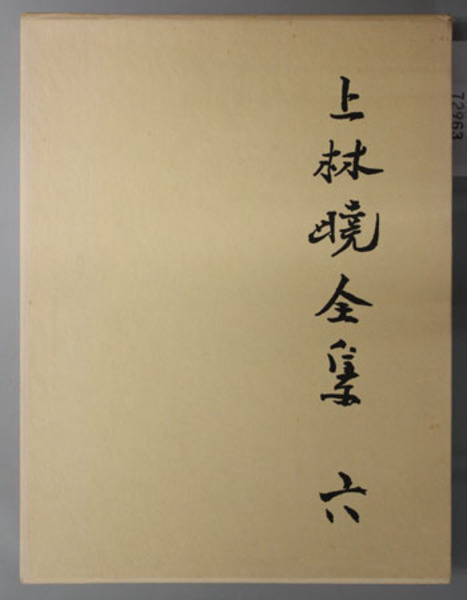 上林暁全集 六
72963